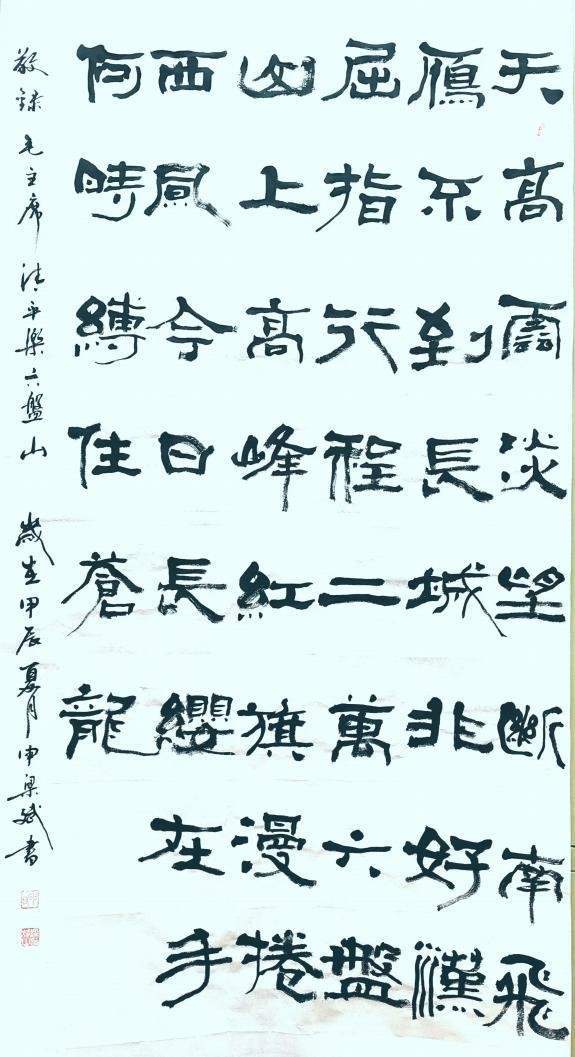 天高雲淡望斷南飛
雁不到長城非好漢
屈指行程二萬六盤
山上高峰紅旗漫捲
西風今日長纓在手
何時縛住蒼龍
敬錄毛主席清平樂六盤山 歲在甲辰夏月申梁斌書